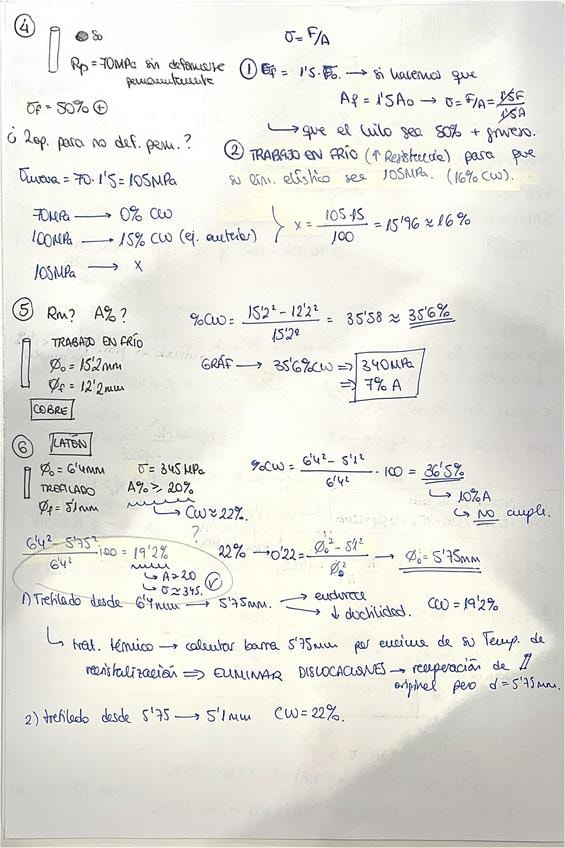 ④ S₀ σ = F/A
Rp = 70MPa sin deformarse permanentemente
① = 1'5 · → si hacemos que
Af = 1'5A₀ → σ = F/A = 1'5F/1'5A
↳ que el hilo sea 50% + grueso.
σf = 50% ⊕
¿2op. para no def. perm.?
② TRABAJO EN FRÍO (↑ Resistencia) para que
su lím. elástico sea 105MPa. (16% CW).
σnueva = 70 · 1'5 = 105MPa
70MPa → 0% CW
100MPa → 15% CW (ej. anterior)
105MPa → x
x = 105·15/100 = 15'96 ≈ 16%
⑤ Rm? A%?
TRABAJO EN FRÍO
Ø₀ = 15'2mm
Øf = 12'2mm
COBRE
%CW = 15'2² - 12'2²/15'2² = 35'58 ≈ 35'6%
GRÁF → 35'6%CW ⇒ 340MPa
⇒ 7% A
⑥ LATÓN
Ø₀ = 6'4mm σ = 345MPa
TREFILADO A% ≥ 20%
Øf = 5'1mm ↳ CW ≈ 22%.
%CW = 6'4² - 5'1²/6'4² · 100 = 36'5%
↳ 10%A
↳ NO cumple.
6'4² - 5'75²/6'4² · 100 = 19'2%
↳ A > 20
↳ σ ≈ 345.
?
22% → 0'22 = Ø₀² - 5'1²/Ø₀² → Ø₀ = 5'75mm
1) Trefilado desde 6'4mm → 5'75mm. → endurece
→ ↓ ductilidad. CW = 19'2%
↳ trat. térmico → calentar barra 5'75mm por encima de su Temp. de
recristalización ⇒ ELIMINAR DISLOCACIONES → recuperación de
original pero d = 5'75mm.
2) trefilado desde 5'75 → 5'1mm CW = 22%.